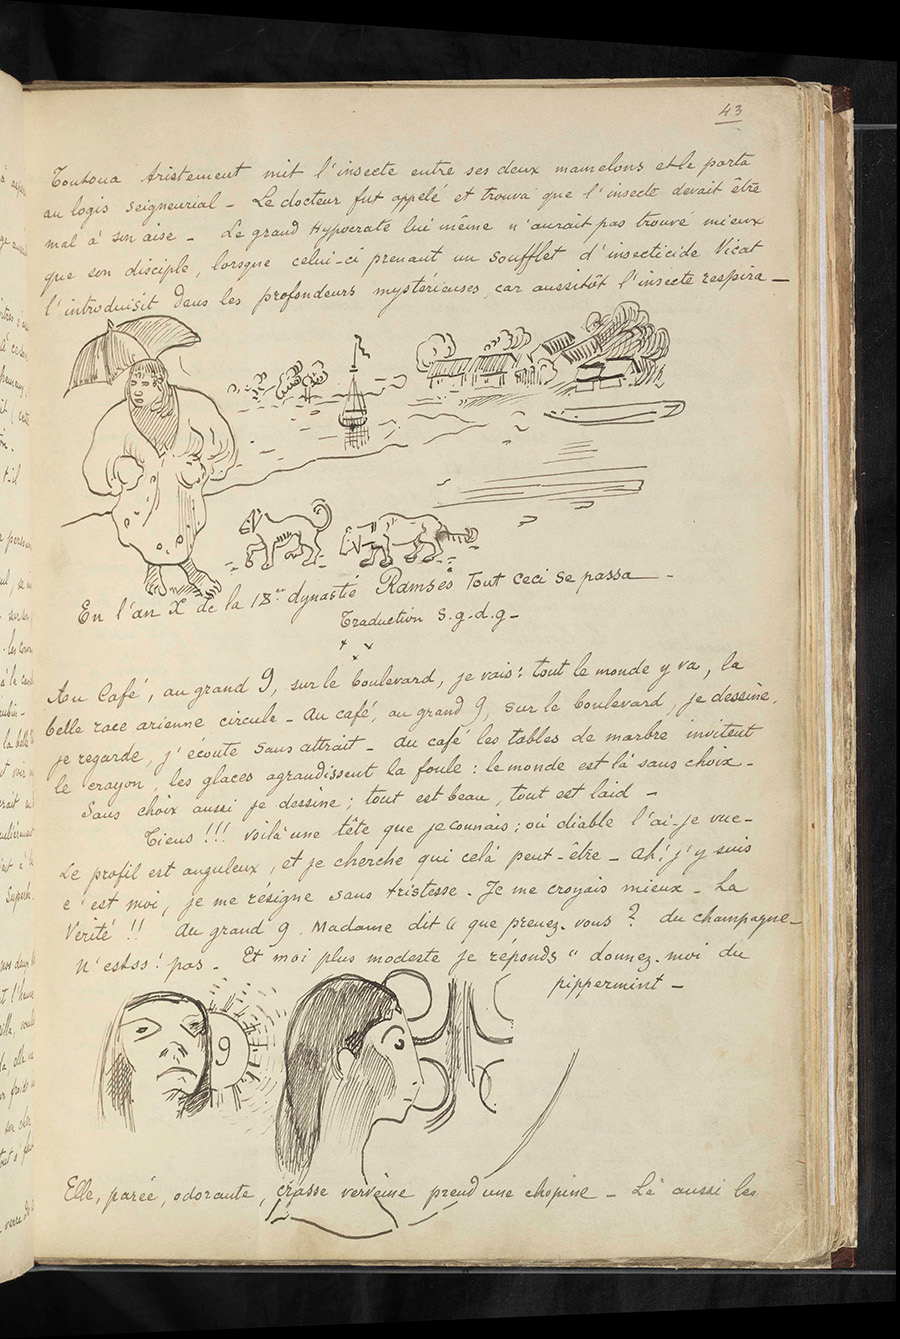 43
Toutoua tristement mit l'insecte entre ses deux mamelons et le porta
au logis seigneurial - Le docteur fut appelé et trouva que l'insecte devait être
mal à son aise - Le grand Hypocrate lui même n'aurait pas trouvé mieux
que son disciple, lorsque celui-ci prenant un soufflet d'insecticide Vicat
l'introduisit dans les profondeurs mystérieuses, car aussitôt l'insecte respira -
En l'an X de la 18e dynastie Ramsès Tout ceci se passa -
Traduction s.g.d.g -
Au Café, au grand 9, sur le boulevard, je vais : tout le monde y va, la
belle race arienne circule - Au café, au grand 9, sur le boulevard, je dessine,
je regarde, j'écoute sans attrait - du café les tables de marbre invitent
le crayon, les glaces agrandissent la foule : le monde est là sans choix -
Sans choix aussi je dessine ; tout est beau, tout est laid -
Tiens !!! voilà une tête que je connais ; où diable l'ai-je vue -
Le profil est anguleux, et je cherche qui celà peut-être - Ah! j'y suis
c'est moi, je me résigne sans tristesse - Je me croyais mieux - La
Vérité !! Au grand 9. Madame dit " que prenez-vous ? du champagne -
N'estss' pas - Et moi plus modeste je réponds " donnez-moi du
pippermint -
9
Elle, parée, odorante, crasse verveine prend une chopine - Là aussi les